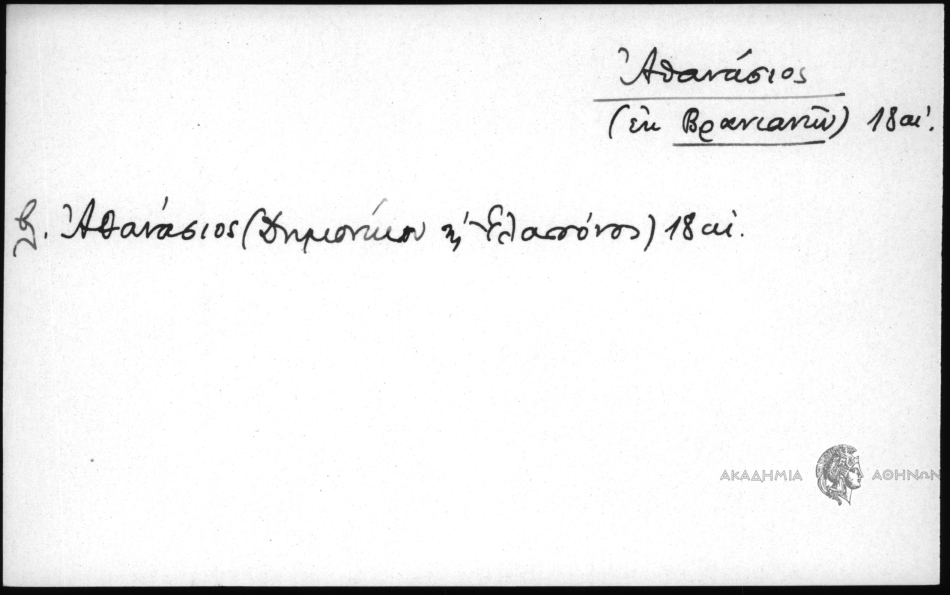 Ἀθανάσιος
(ἐκ Βρανιανῶν) 18 αἰ.
βλ. Ἀθανάσιος (Δημονίκου ἢ Ἐλασσόνος) 18 αἰ.
ΑΚΑΔΗΜΙΑ ΑΘΗΝΩΝ